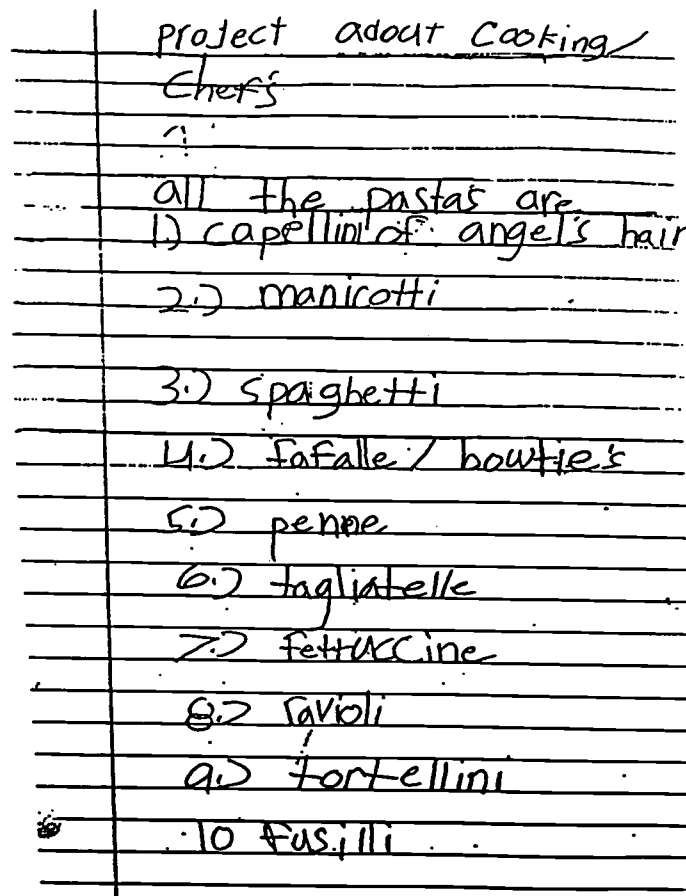 Project adout Cooking/
Chef's
all the pastas are
1.) capellini of angel's hair
2.) manicotti
3.) spaighetti
4.) fafalle / bowtie's
5.) penne
6.) tagliatelle
7.) fettuccine
8.) ravioli
9.) tortellini
10 fusilli